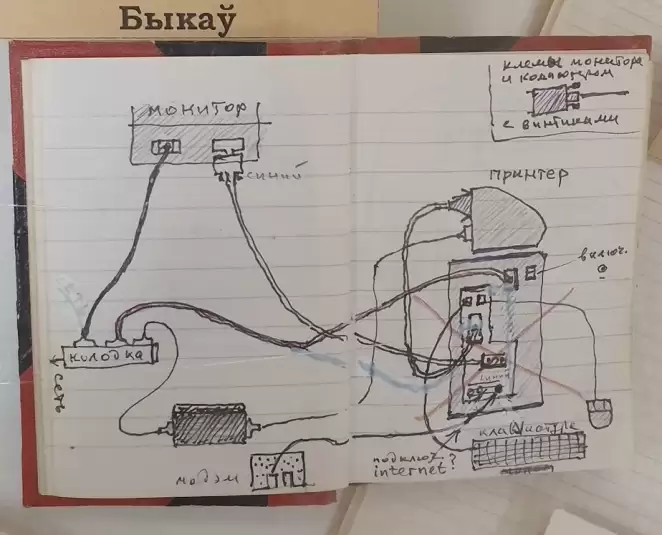 Быкаў
клеммы монитора
и компютером
с винтиками
монитор
синий
принтер
включ.
колодка
сеть
синий
клавиатура
подключ?
internet?
модэм